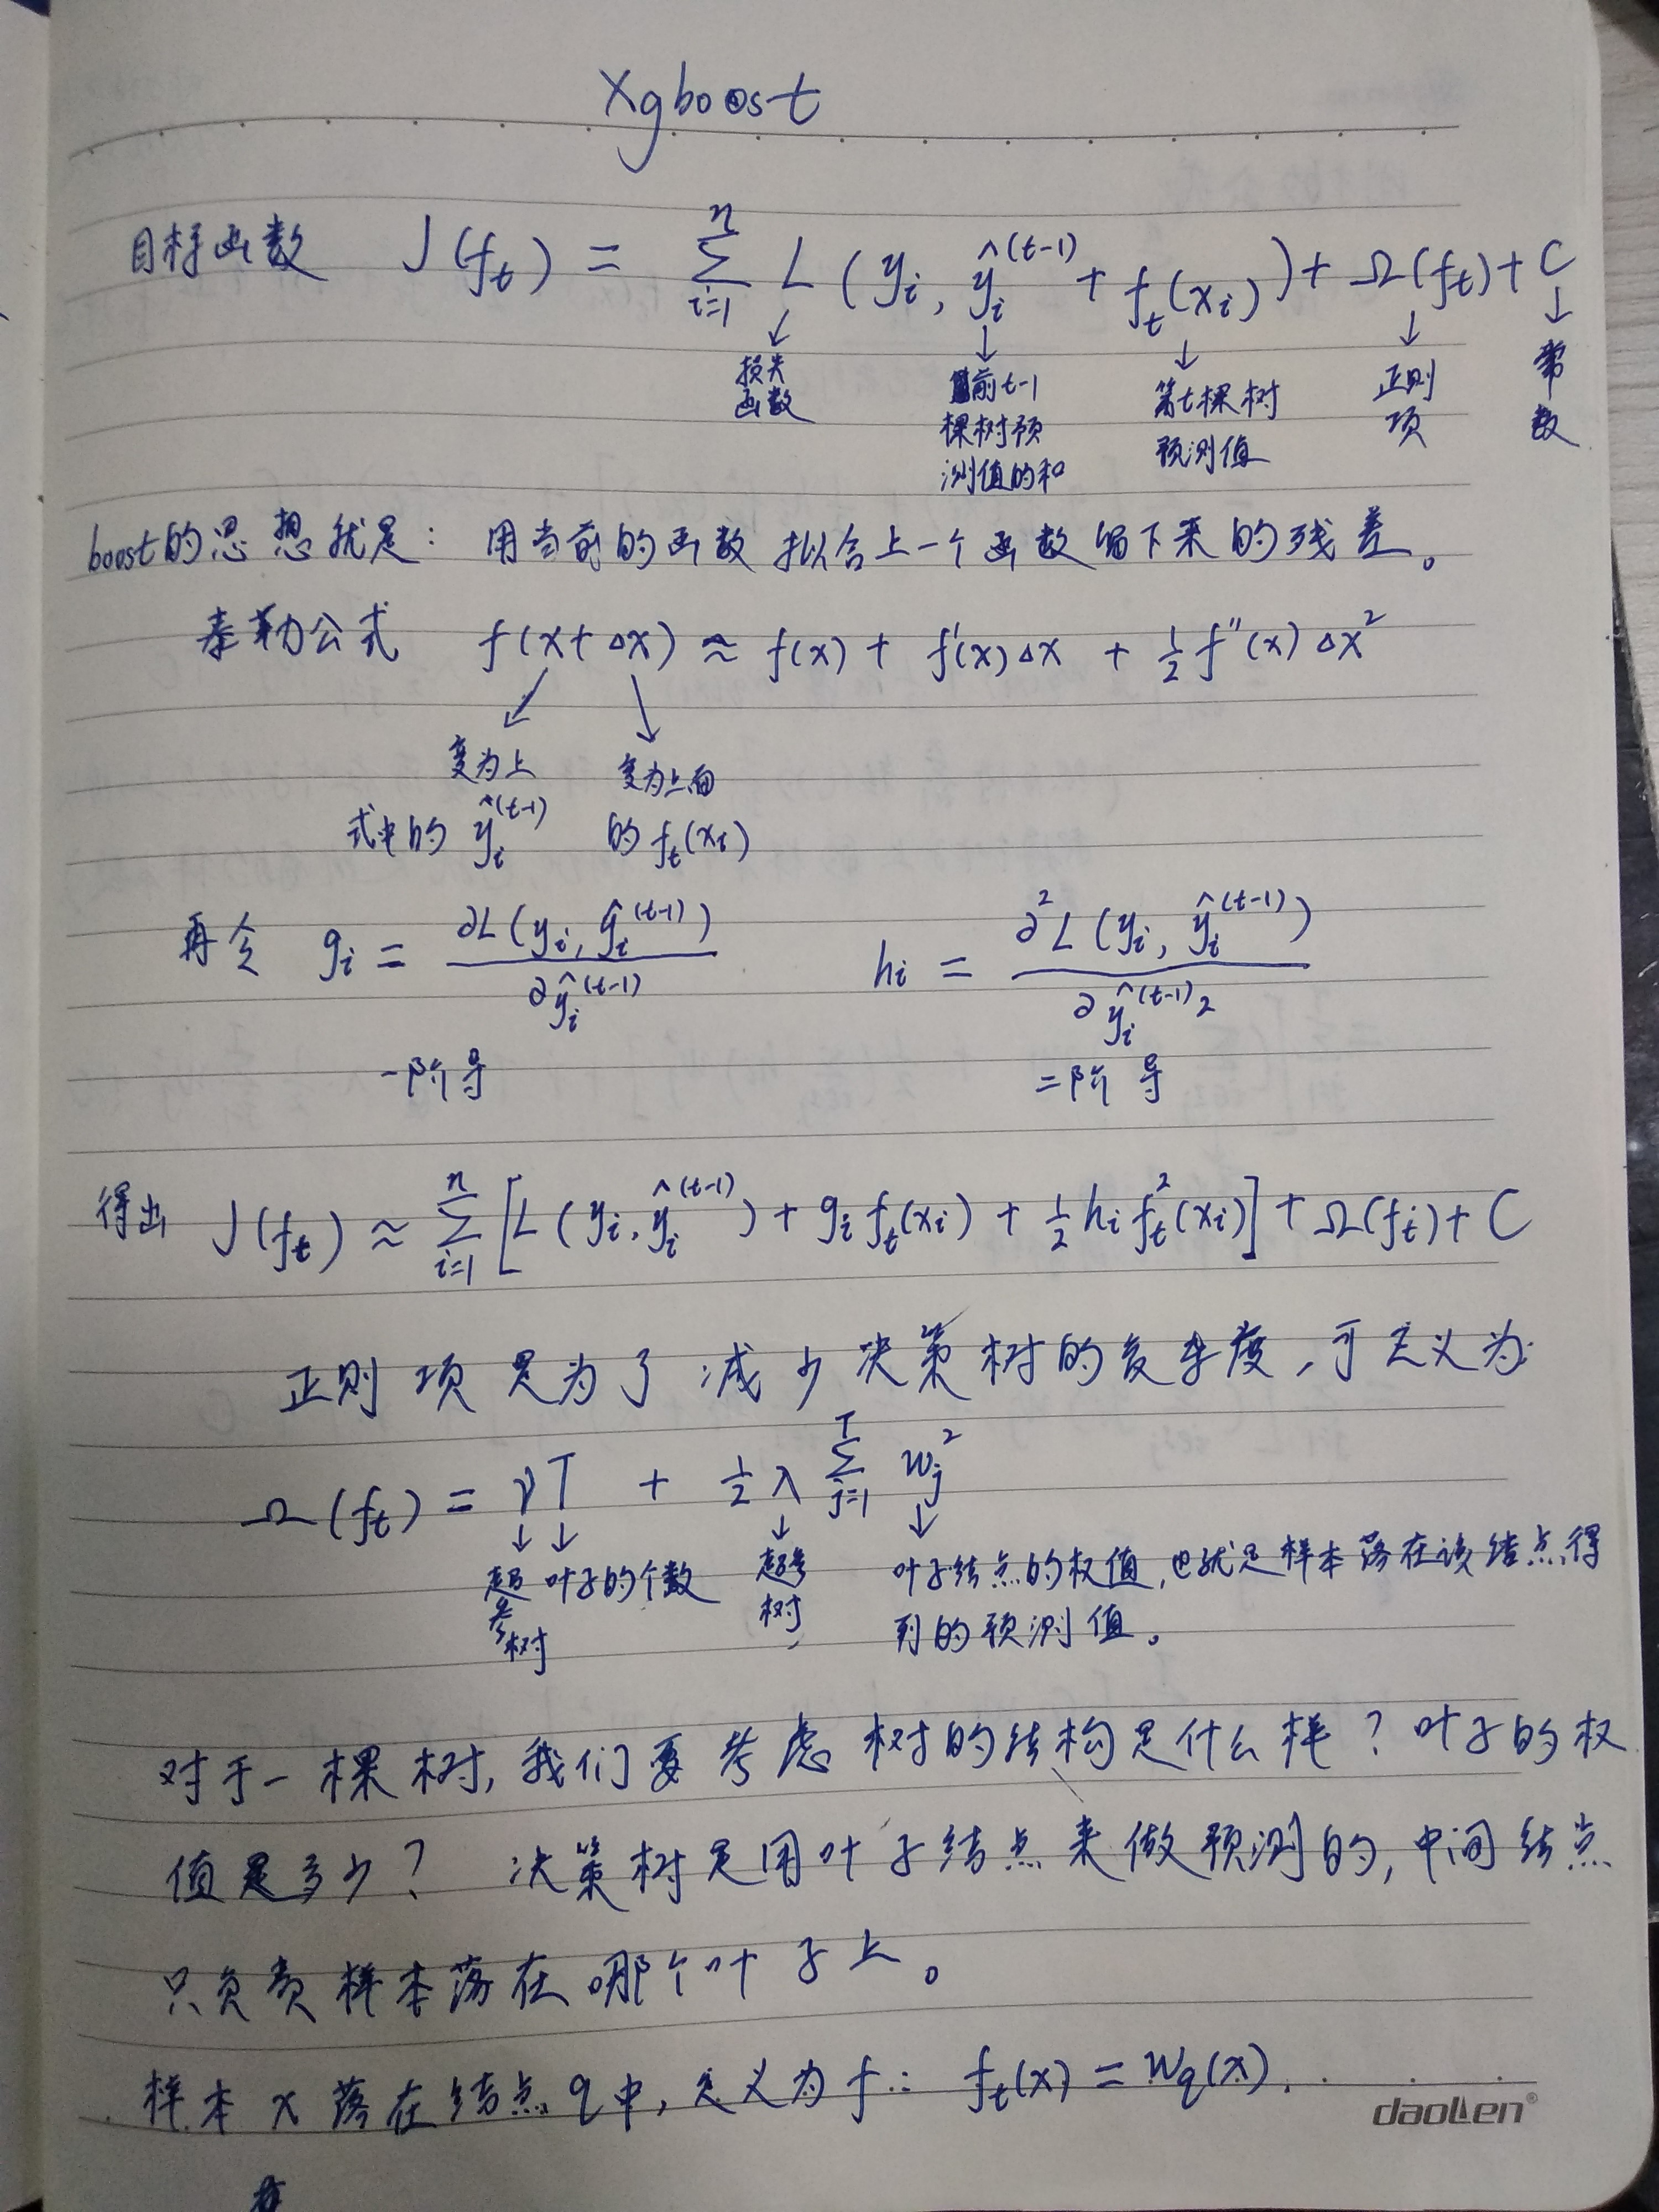 Xgboost
目标函数 J(f_t) = \sum_{i=1}^{n} L(y_i, \hat{y}_i^{(t-1)} + f_t(x_i)) + Ω(f_t) + C
↓ ↓ ↓ ↓ ↓
损失函数
前t-1棵树预测值的和
第t棵树预测值
正则项
常数
boost的思想就是: 用当前的函数拟合上一个函数留下来的残差。
泰勒公式 f(x+Δx) ≈ f(x) + f'(x)Δx + \frac{1}{2}f''(x)Δx^2
变为上式中的 \hat{y}_i^{(t-1)}
变为上面的 f_t(x_i)
再令 g_i = \frac{∂L(y_i, \hat{y}_i^{(t-1)})}{∂\hat{y}_i^{(t-1)}} h_i = \frac{∂^2L(y_i, \hat{y}_i^{(t-1)})}{∂\hat{y}_i^{(t-1)2}}
一阶导 二阶导
得出 J(f_t) ≈ \sum_{i=1}^{n} [L(y_i, \hat{y}_i^{(t-1)}) + g_i f_t(x_i) + \frac{1}{2}h_i f_t^2(x_i)] + Ω(f_i) + C
正则项是为了减少决策树的复杂度,可定义为:
Ω(f_t) = γT + \frac{1}{2}λ \sum_{j=1}^{T} w_j^2
↓ ↓ ↓ ↓
超参树
叶子的个数
超参树
叶子结点的权值,也就是样本落在该结点得
到的预测值。
对于一棵树,我们要考虑树的结构是什么样?叶子的权
值是多少? 决策树是用叶子结点来做预测的,中间结点
只负责样本落在哪个叶子上。
样本x落在结点q中,定义为f: f_t(x) = w_q(x).
daolen®